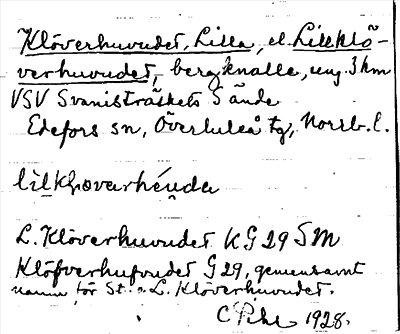 Klöverhuvudet, Lilla, el. Lillklö-
verhuvudet, bergknalle, ung. 3 km
VSV Svanisträskets S ände
Edefors sn, Överluleå tg, Norrb. l.
L. Klöverhuvudet KG 29 SM
Klöfverhufvudet G 29, gemensamt
namn för St. o. L. Klöverhuvudet.
1928.